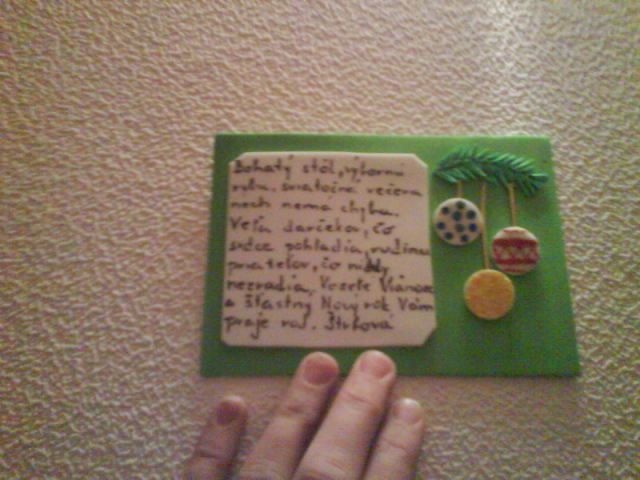 Bohatý stôl, výbornú
rybu, sviatočná večera
nech nemá chyba.
Veľa darčekov, čo
srdce pohladia, rodinu
priateľov, čo nikdy
nezradia, Veselé Vianoce
a Šťastný Nový rok Vám
praje rod. Štrbová